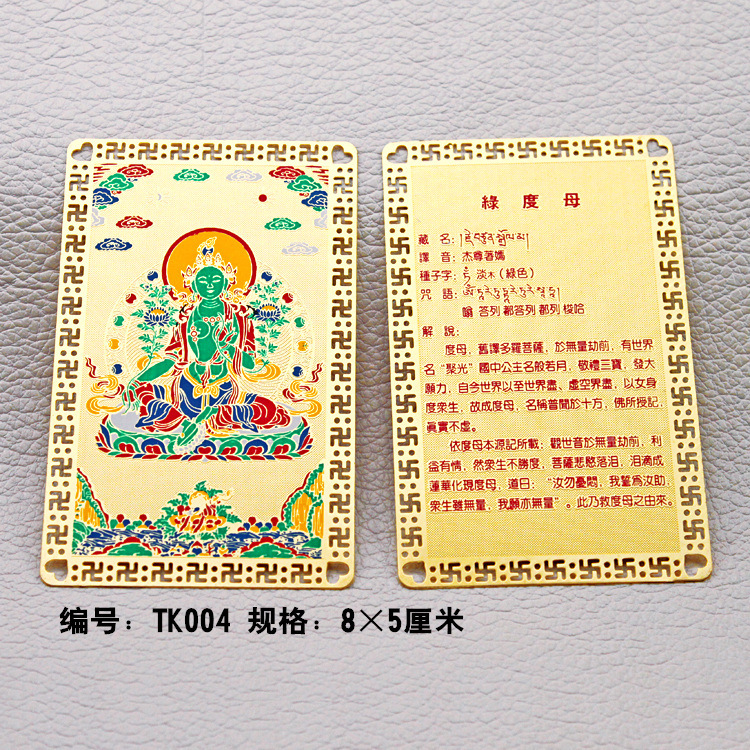 綠度母
藏 名：རྗེ་བཙུན་སྒྲོལ་མ།
譯 音：杰尊著嬀
種子字： 淡木（綠色）
咒 語：
嗡 答列 都答列 都列 梭哈
解 說：
度母，舊譯多羅菩薩，於無量劫前，有世界
名“聚光”國中公主名般若月，敬禮三寶，發大
願力，自今世界以至世界盡、虛空界盡，以女身
度衆生，故成度母，名稱普聞於十方，佛所授記，
眞實不虛。
依度母本源記所載：觀世音於無量劫前，利
益有情，然衆生不勝度，菩薩悲愍落泪，泪滴成
蓮華化現度母，道曰：“汝勿憂悶，我誓爲汝助，
衆生雖無量，我願亦無量”。此乃救度母之由來。
编号：TK004 规格：8×5厘米